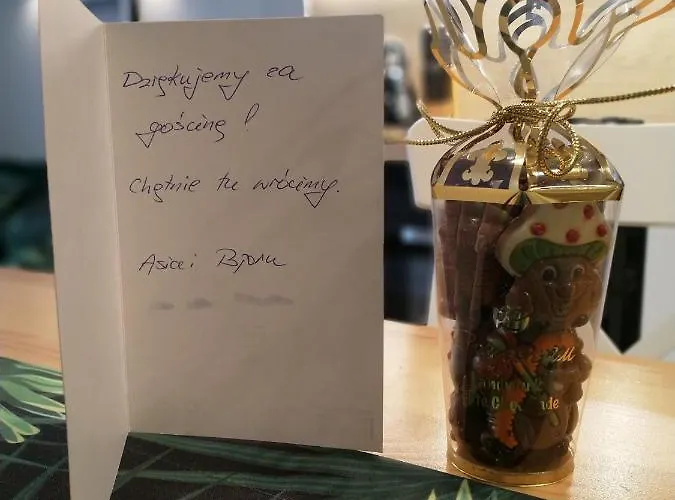 Dziękujemy za
gościnę!
Chętnie tu wrócimy.
Asia i Bjorn